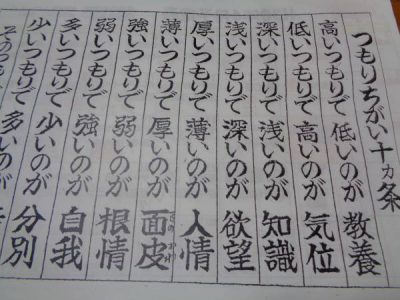 つもりちがい十ヵ条
高いつもりで低いのが教養
低いつもりで高いのが気位
深いつもりで浅いのが知識
浅いつもりで深いのが欲望
厚いつもりで薄いのが人情
薄いつもりで厚いのが面皮
強いつもりで弱いのが根情
弱いつもりで強いのが自我
多いつもりで少いのが分別
少いつもりで多いのが